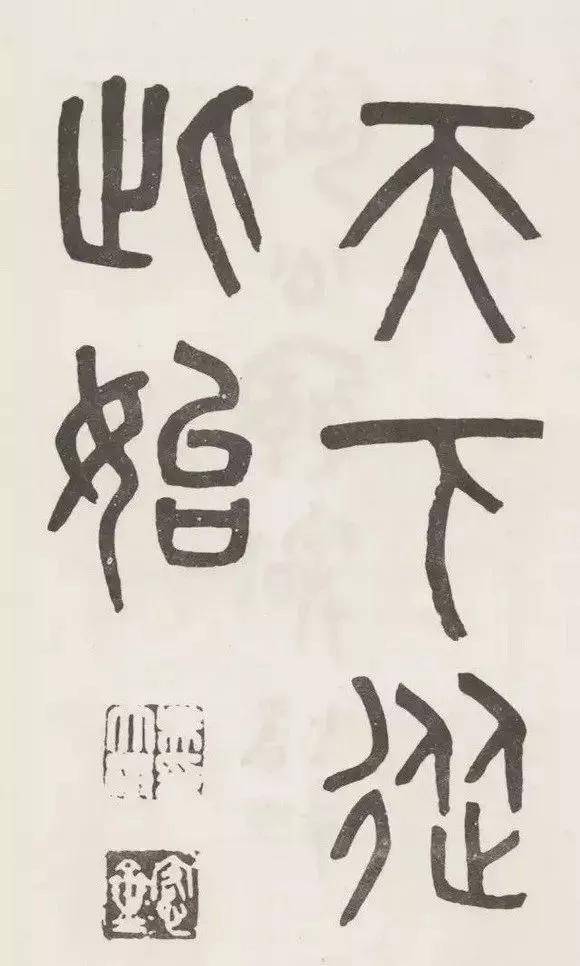 天下從
此始